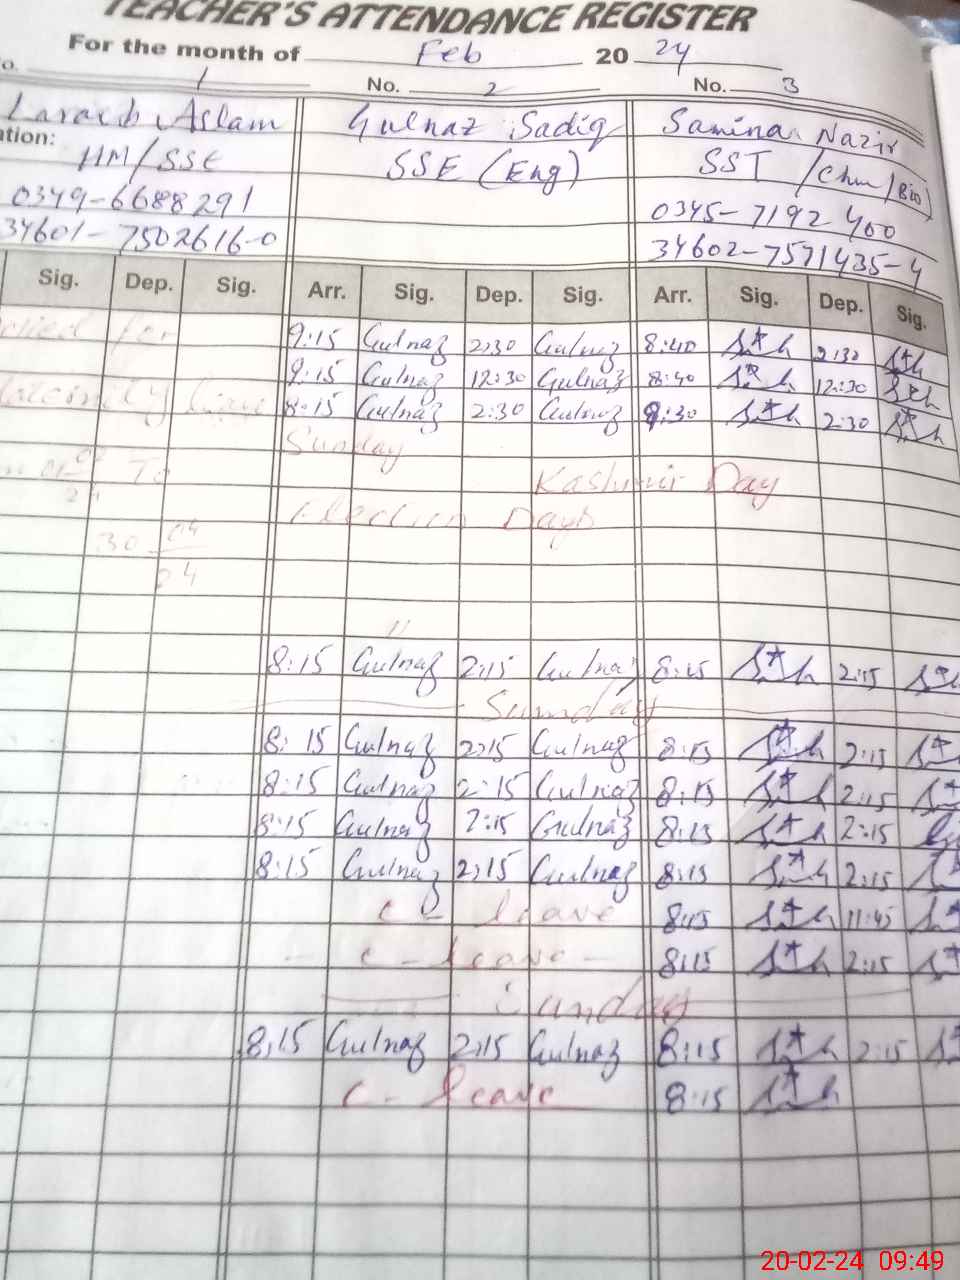 TEACHER'S ATTENDANCE REGISTER
For the month of Feb 2024
No. 1 No. 2 No. 3
Laraib Aslam Gulnaz Sadiq Samina Nazir
HM/SSE SSE (Eng) SST /Chm/Bio)
0349-6688291 0345-7192400
34601-7502616-0 34602-7571435-4
Sig. Dep. Sig. Arr. Sig. Dep. Sig. Arr. Sig. Dep. Sig.
for 9:15 Gulnaz 2:30 Gulnaz 8:40 2:30
9:15 Gulnaz 12:30 Gulnaz 8:40 12:30
leave 8:15 Gulnaz 2:30 Gulnaz 8:30 2:30
Sunday
To Kashmir Day
Election Days
30 04
24
"
8:15 Gulnaz 2:15 Gulnaz 8:15 2:15
Sunday
8:15 Gulnaz 2:15 Gulnaz 8:15 2:15
8:15 Gulnaz 2:15 Gulnaz 8:15 2:15
8:15 Gulnaz 2:15 Gulnaz 8:15 2:15
8:15 Gulnaz 2:15 Gulnaz 8:15 2:15
C - leave 8:15 11:45
- C - leave - 8:15 2:15
Sunday
8:15 Gulnaz 2:15 Gulnaz 8:15 2:15
C - leave 8:15
20-02-24 09:49